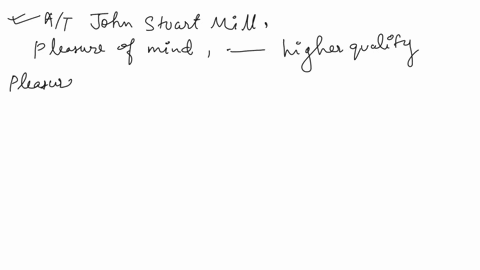 A/T John Stuart Mill,
Pleasure of mind, — higher quality
Pleasur